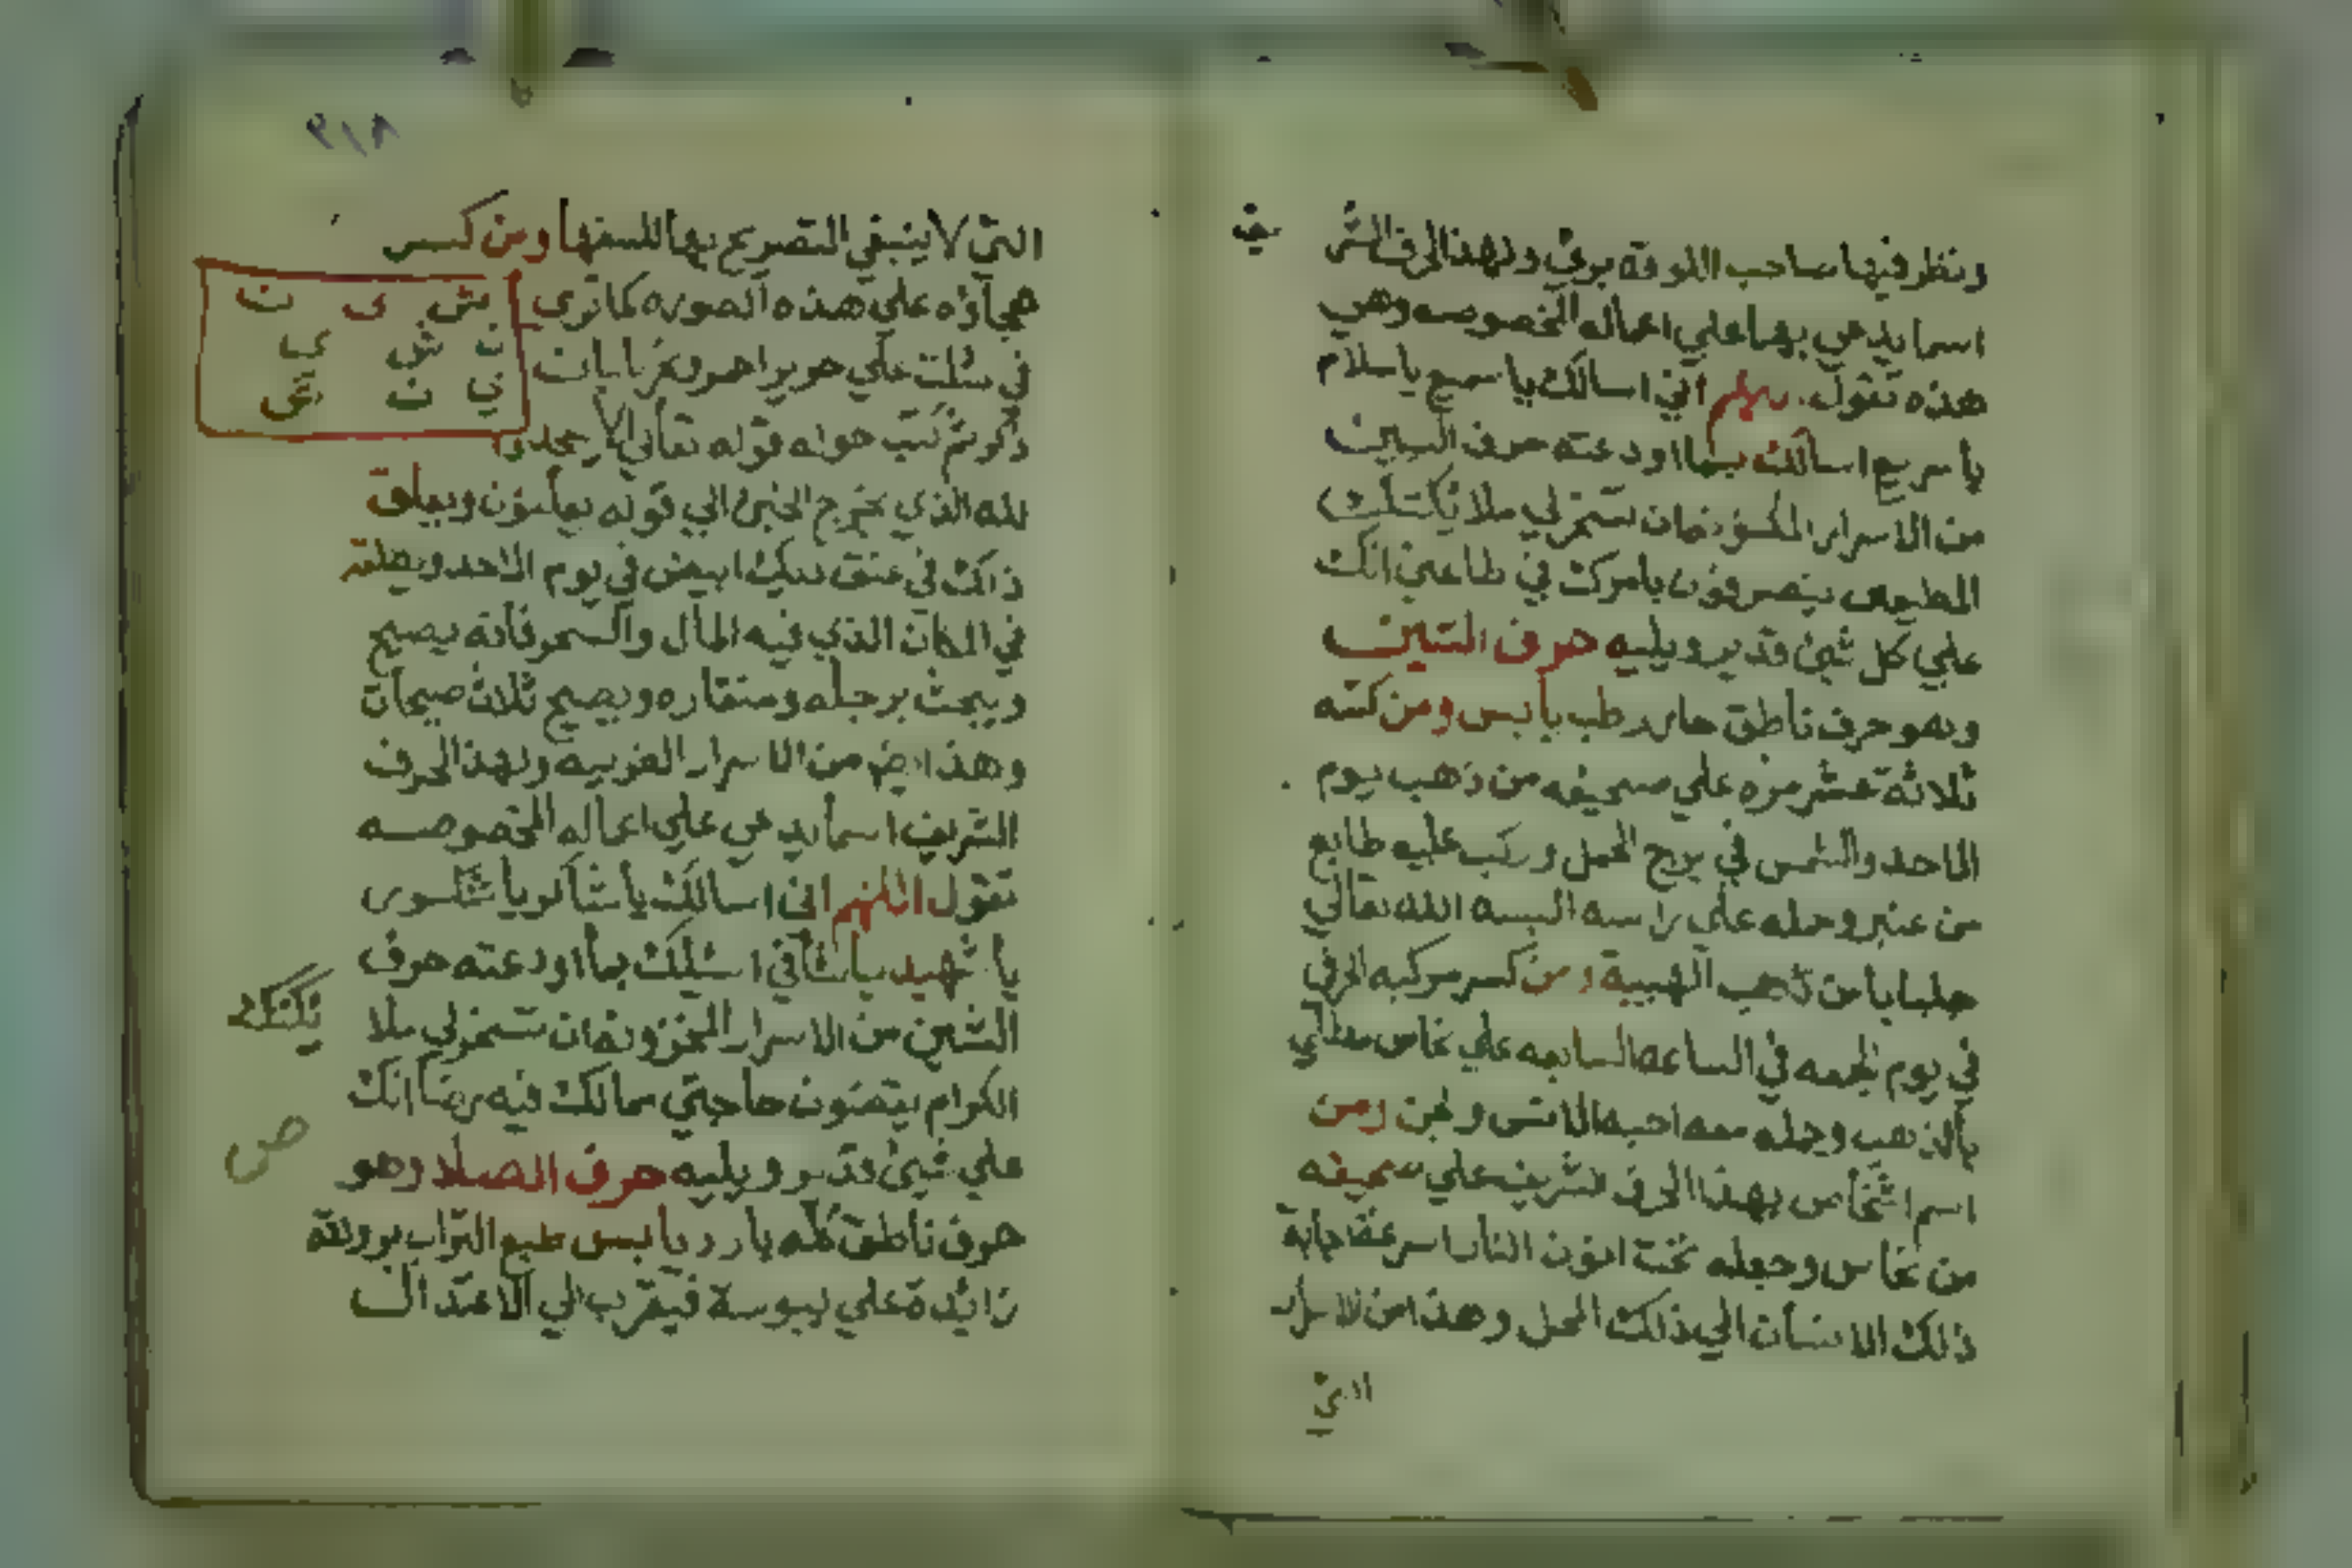 ونظر فيها صاحب اللوقة بري ولهذا الحرف الشر
يف
اسما يدعي بها علي اعماله المخصوصه وهي
هذه تقول اللهم اني اسالك يا سميع يا سلام
يا سريع اسالك بما اودعته حرف السين
من الاسرار المخزونه ان تسخر لي ملائكتك
المطيعين يتصرفون بامرك في طاعتي انك
علي كل شئ قدير ويليه حرف الشين
وهو حرف ناطق حار رطب يابس ومن كتبه
ثلاثة عشر مره علي صحيفه من ذهب يوم
الاحد والشمس في برج الحمل وركب عليه طابع
من عنبر وحمله علي راسه البسه الله تعالي
جلبابا من ذهب الهيبة ومن كسر مركبه الحرفي
في يوم الجمعه في الساعه السابعه علي نحاس مطلي
بالذهب وحمله معه احبه الانس والجن ومن
اسم اشخاص بهذا الحرف الشريف علي صحيفه
من نحاس وجعله تحت اتون النار اسرعة اجابة
ذلك الانسان الي ذلك المحل وهذا من الاسرار
التي
٣١٨
التي لا ينبغي التصريح بها للسفها ومن كسر
هجاؤه علي هذه الصوره كما تري
في مثلث علي حرير احمر
ذكر ثم كتب حوله قوله تعالي الا يسجدوا
لله الذي يخرج الخبئ الي قوله يعلنون ويعلق
ذلك في عنق ديك ابيض في يوم الاحد ويطلقه
في المكان الذي فيه المال والسحر فانه يصيح
ويبحث برجله ومنقاره ويصيح ثلاث صيحات
وهذا ايض من الاسرار الغريبه ولهذا الحرف
الشريف اسما يدعي علي اعماله المخصوصه
تقول اللهم اني اسالك يا شاكر يا شكور
يا شهيد يا شافي اسئلك بما اودعته حرف
الشين من الاسرار المخزونه ان تسخر لي ملا
ئكتك
الكرام يقضون حاجتي مما لك فيه رضا انك
علي شئ قدير ويليه حرف الصاد وهو
ص
حرف ناطق كله بارد يابس طبع التراب برودته
زائدة علي يبوسة فيقرب الي الاعتدال